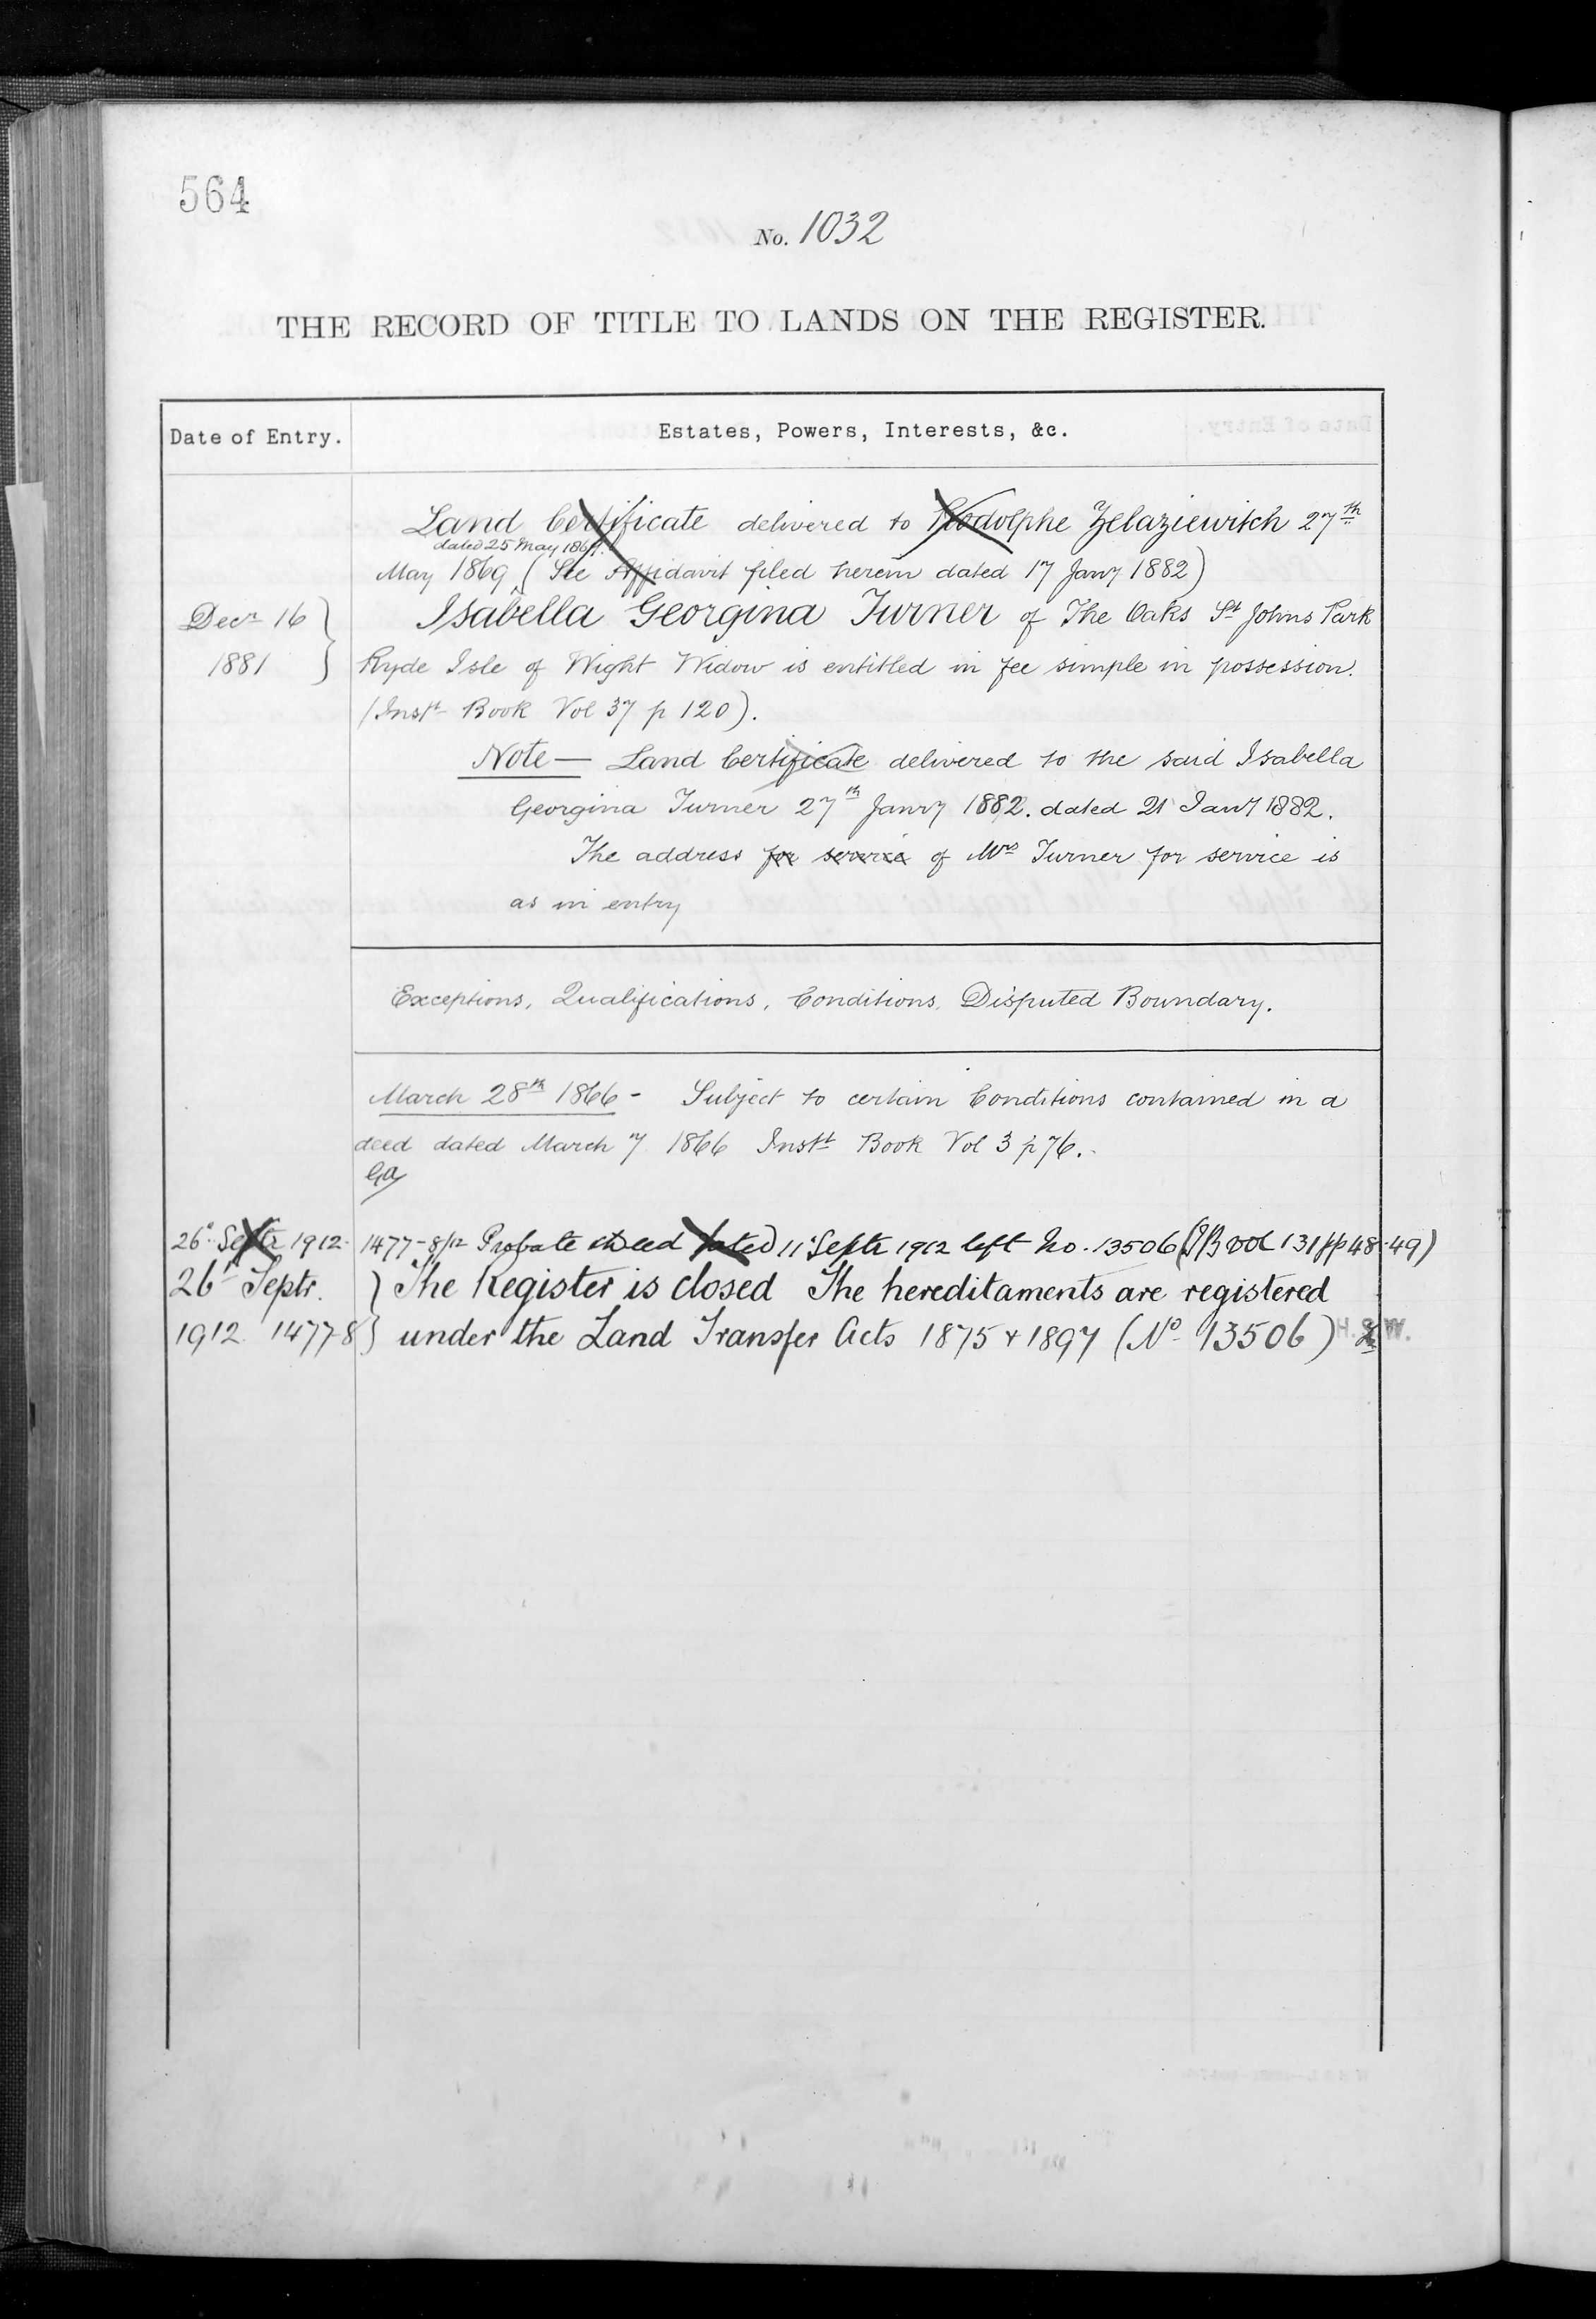 564
No. 1032
THE RECORD OF TITLE TO LANDS ON THE REGISTER.
Date of Entry.
Estates, Powers, Interests, &c.
Land Certificate delivered to Rodolphe Zelaziewitch 27th
dated 25 May 1869.
May 1869 (See Affidavit filed herein dated 17 Jany 1882)
Decr 16 Isabella Georgina Turner of The Oaks St Johns Park
1881 Ryde Isle of Wight Widow is entitled in fee simple in possession.
(Instt Book Vol 37 p 120).
Note — Land Certificate delivered to the said Isabella
Georgina Turner 27th Janry 1882. dated 21 Jany 1882.
The address for service of Mrs Turner for service is
as in entry
Exceptions, Qualifications, Conditions, Disputed Boundary.
March 28th 1866 - Subject to certain Conditions contained in a
deed dated March 7 1866 Instt Book Vol 3 p 76.
26 Septr 1912 1477-8/12 Probate & Deed dated 11 Septr 1912 left No. 13506 (IB vol 131 pp 48-49)
26t Septr. } The Register is closed The hereditaments are registered
1912 1477-8 } under the Land Transfer Acts 1875 & 1897 (No 13506)